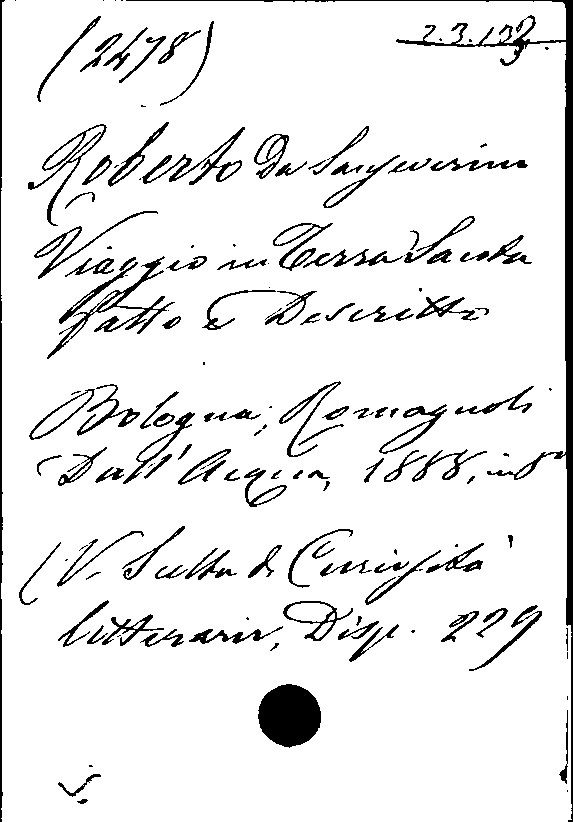 (2478)
2.3.132.
Roberto Da Sanseverino
Viaggio in Terra Santa
fatto e Descritto
Bologna, Romagnoli
Dall'Acqua, 1888, in 8°
(V. Scelta di Curiosità
litterarie, Disp. 229